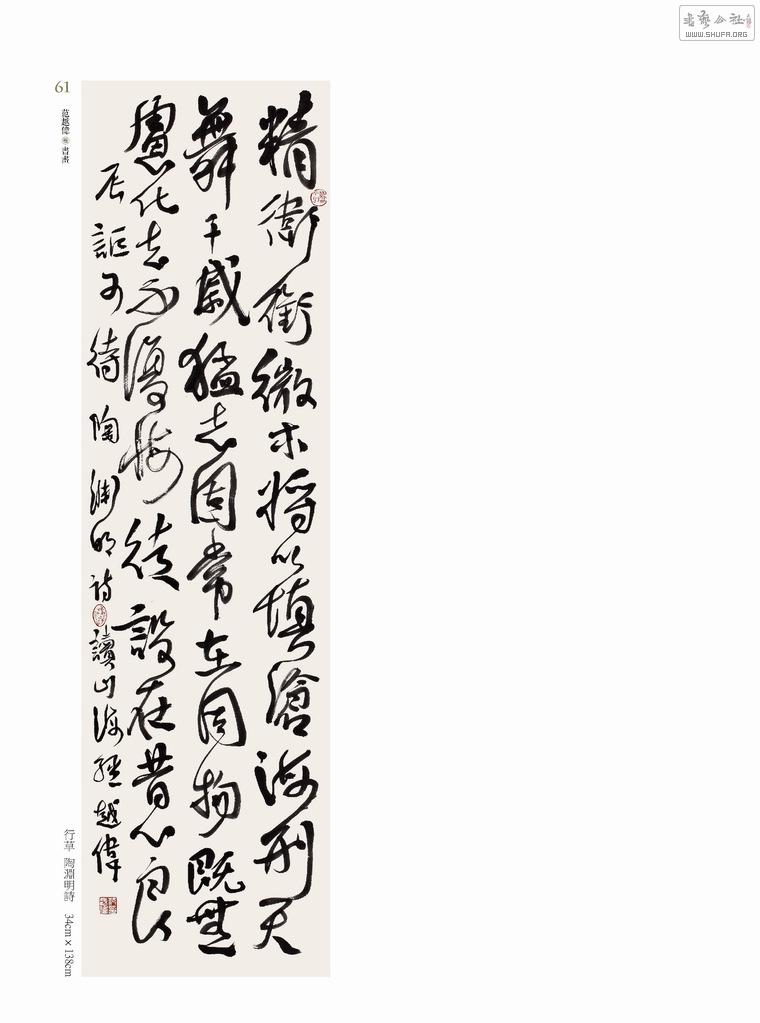 書藝公社
WWW.SHUFA.ORG
精衛銜微木將以填滄海刑天
舞干戚猛志固常在同物既無
慮化去不復悔徒設在昔心良
辰詎可待 陶淵明詩 讀山海經 越偉
61
范越偉 書畫
行草 陶淵明詩 34cm×138cm